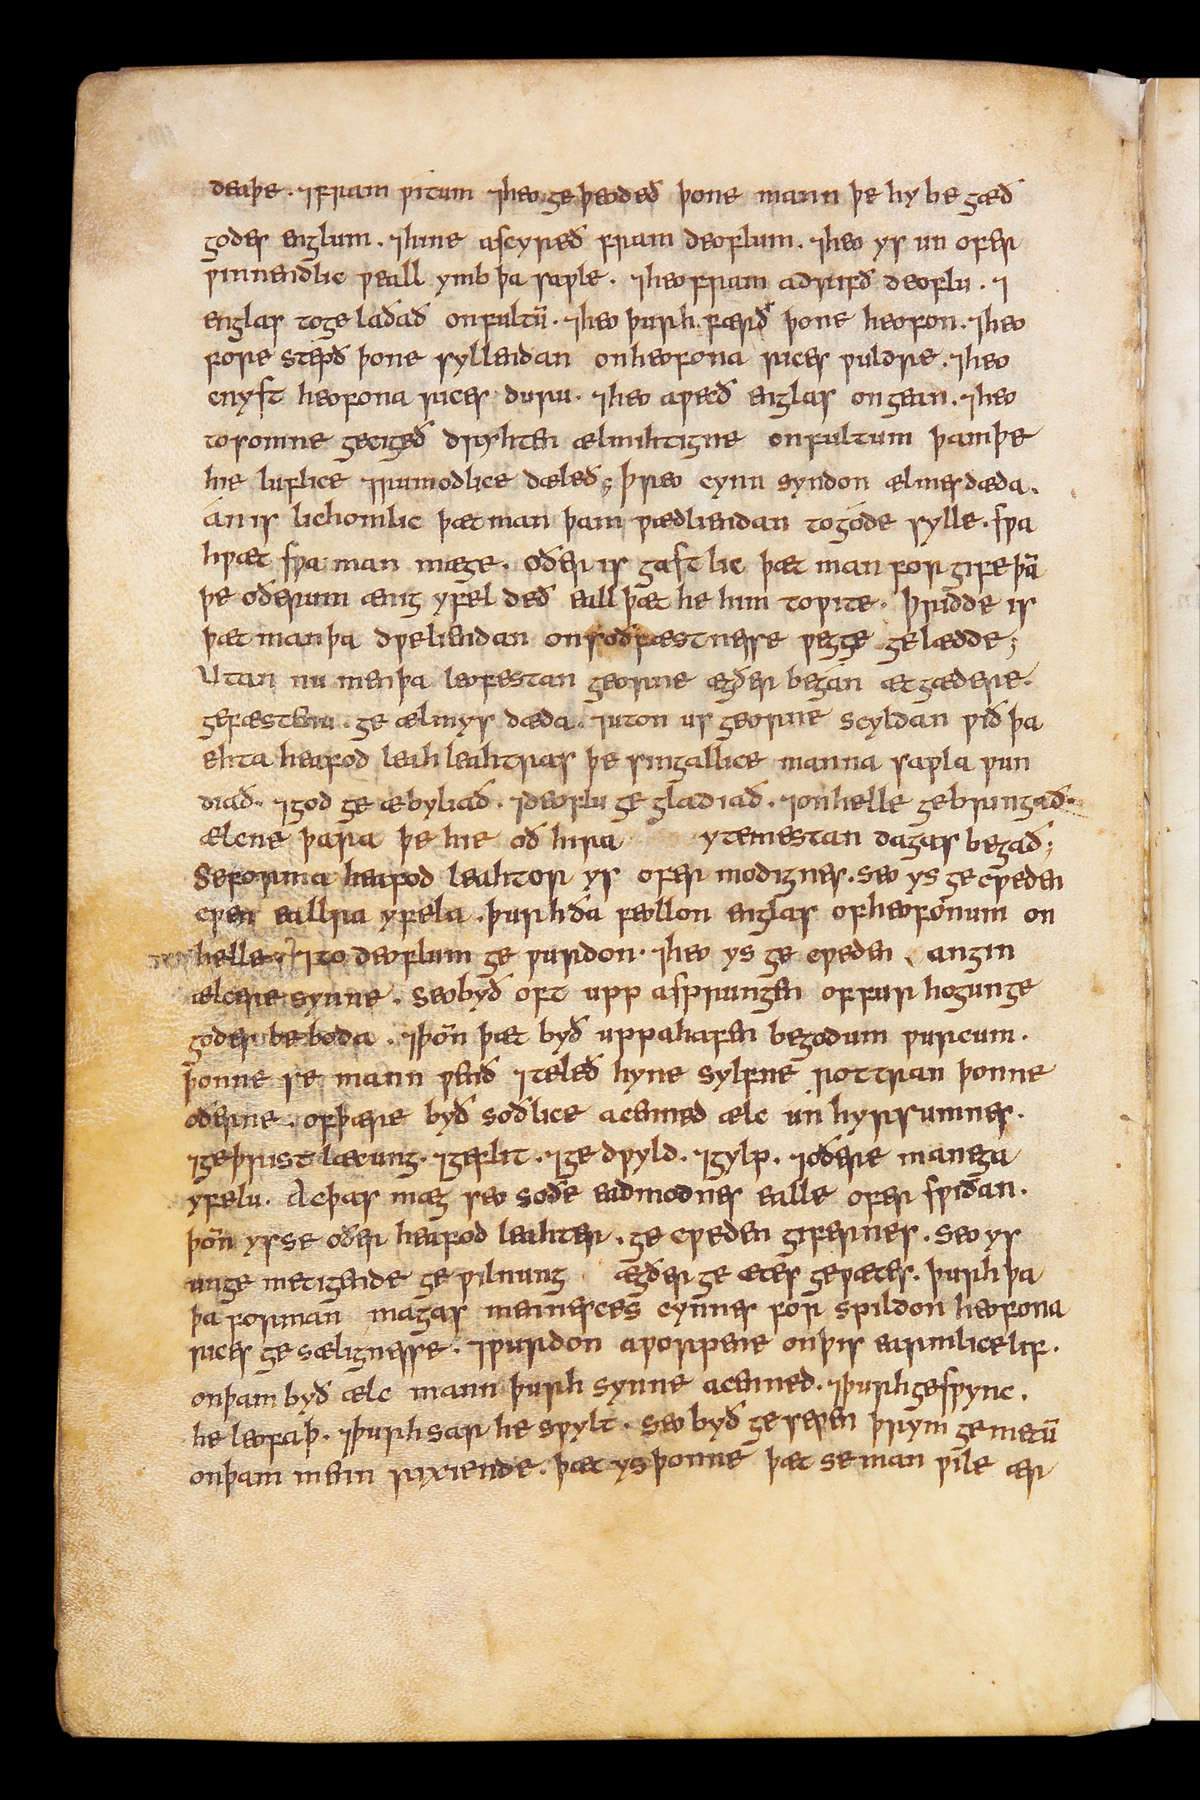 deaþe . ⁊ fram witum ⁊ heo ge þeodeð þone mann þe hy be gæð
godes englum . ⁊ hine ascyreð fram deoflum . ⁊ heo ys un ofer
winnendlic weall ymb þa saple . ⁊ heo fram adrifð deoflu . ⁊
englas toge laðað on fultū . ⁊ heo þurh færð þone heofon . ⁊ heo
fore stepð þone syllendan on heofona rices wuldre . ⁊ heo
cnyst heofona rices duru . ⁊ heo aweð englas on gean . ⁊ heo
to somne geciged dryhten ælmihtigne on fultum þam þe
hie luflice ⁊ rumodlice dæleð ; þreo cynn syndon ælmes dæda .
án is lichomlic þæt man þam wædliendan to gode sylle . swa
hwæt swa man mæge . oðer is gastlic þæt man for gife þā
þe oðerum ænig yfel deð eall þæt he him to wite . þridde is
þæt man þa dweliendan on soðfæstnesse wegge gelædde ;
Utan nu men þa leofestan georne ægðer began æt gædere .
ge fæstenu . ge ælmys dæda . ⁊ uton us georne scyldan wið þa
ehta heafod leah leahtras þe singallice manna sapla wun
diað . ⁊ god ge æbyliað . ⁊ deoflu ge gladiað . ⁊ on helle gebrungað .
ælcne þara þe hie oð hira ytemestan dagas begað ;
Se forma heafod leahtor ys ofer modignes . seo ys ge cweden
cwen eallra yfela . þurh ða feollon englas of heofonum on
helle . ⁊ to deoflum ge wurdon . ⁊ heo ys ge cweden . angin
ælcere synne . Seo byð oft upp asprungen of fur hogunge
godes be boda . ⁊ þōn þæt byð upp ahafen be godum wurcum .
þonne se mann wenð ⁊ teleð hyne sylfne rottran þonne
oðerne . of þære byð soðlice acenned ælc un hyrsumnes .
⁊ ge þrist læcung . ⁊ geflit . ⁊ ge dwyld . ⁊ gylp . ⁊ oðere manega
yfelu . Ac þas mæg seo soðe eadmodnes ealle ofer swiðan .
þōn ys se oðer heafod leahter . ge cweden gifernes . seo ys
unge metigende ge wilnung ægðer ge ætes ge wætes . þurh þa
þa forman magas mennesces cynnes for spildon heofona
rices ge sælignesse . ⁊ wurdon aworpene on þis earmlice lif .
on þam byð ælc mann þurh synne acenned . ⁊ þurh geswync .
he leofaþ . ⁊ þurh sar he swylt . seo byð ge sewen þrym gemetū
on þam menn rixiende . þæt ys þonne þæt se man wile ær